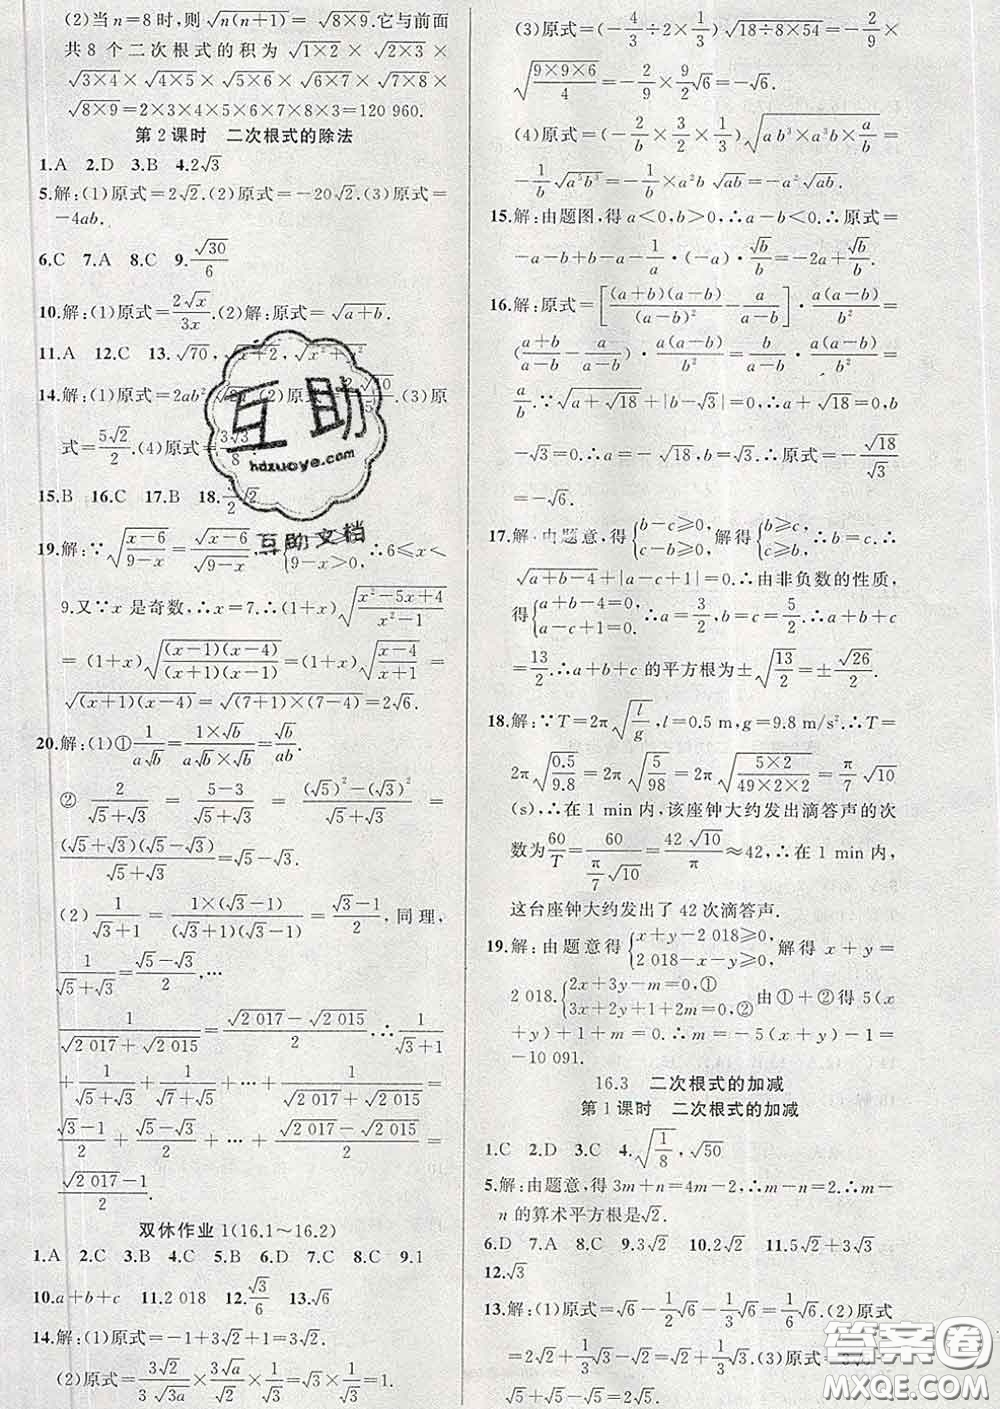 (2)当n=8时,则√(n(n+1))=√(8×9).它与前面
共8个二次根式的积为√(1×2)×√(2×3)×
√(3×4)×√(4×5)×√(5×6)×√(6×7)×√(7×8)×
√(8×9)=2×3×4×5×6×7×8×3=120 960.
第2课时 二次根式的除法
1.A 2.D 3.B 4.2√3
5.解:(1)原式=2√2.(2)原式=-20√2.(3)原式=
-4ab.
6.C 7.A 8.C 9.√30/6
10.解:(1)原式=2√x/3x.(2)解:原式=√(a+b).
11.A 12.C 13.√70,
14.解:(1)原式=2ab² (2)原式= (3)原
式=5√2/2.(4)原式=3√3/8.
15.B 16.C 17.B 18.
19.解:∵√((x-6)/(9-x))=√(x-6)/√(9-x),∴ 9-x>0, ∴6≤x<
9.又∵x是奇数,∴x=7.∴(1+x)√((x²-5x+4)/(x²-1))
=(1+x)√((x-1)(x-4)/((x+1)(x-1)))=(1+x)√((x-4)/(x+1))=
√((x+1)(x-4))=√((7+1)×(7-4))=2√6.
20.解:(1)①1/(a√b)=(1×√b)/(a√b×√b)=√b/ab.
②2/(√5+√3)=(5-3)/(√5+√3)=((√5)²-(√3)²)/(√5+√3)=
(√5+√3)(√5-√3)/(√5+√3)=√5-√3.
(2)1/(√3+1)=1×(√3-1)/((√3+1)(√3-1))=(√3-1)/2,同理,
1/(√5+√3)=(√5-√3)/2,…
1/(√2 017+√2 015)=(√2 017-√2 015)/2.∴1/(√3+1)
+1/(√5+√3)+…+1/(√2 017+√2 015)=
(√3-1)/2+(√5-√3)/2+…+(√2 017-√2 015)/2=
(√2 017-1)/2.
双休作业1(16.1~16.2)
1.A 2.C 3.B 4.C 5.B 6.D 7.C 8.C 9.1
10.a+b+c 11.2 018 12.√3/6 13.√6
14.解:(1)原式=-1+3√2+1=3√2.
(2)原式=3√2/(3√(3a))×3√a/√2×√3/3=1.
(3)原式=(-4/3÷2×1/3)√(18÷8×54)=-2/9×
√((9×9×6)/4)=-2/9×9/2√6=-√6.
(4)原式=(-2/b×3/2×1/3)√(ab³×a³b×a/b)=
-1/b√(a⁵b³)=-1/b×a²b√(ab)=-a²√(ab).
15.解:由题图,得a<0,b>0,∴a-b<0.∴原式=
-a-b+b-a-1/a·(-a)·√b/b=-2a+√b/b.
16.解:原式=[(a+b)(a-b)/(a-b)²-a/(a-b)]·a(a-b)/b²=
((a+b)/(a-b)-a/(a-b))·a(a-b)/b²=b/(a-b)·a(a-b)/b²=
a/b.∵√(a+√18)+|b-√3|=0,∴a+√18=0,b
-√3=0.∴a=-√18,b=√3.∴原式=-√18/√3
=-√6.
17.解:由题意,得{b-c≥0, c-b≥0,解得{b≥c, b≤c,∴b=c.∴
√(a+b-4)+|a-c+1|=0.∴由非负数的性质,
得{a+b-4=0, a-c+1=0,∴a=3/2,b=c=5/2.∴a+b+c
=13/2.∴a+b+c的平方根为±√(13/2)=±√26/2.
18.解:∵T=2π√(l/g),l=0.5 m,g=9.8 m/s².∴T=
2π√(0.5/9.8)=2π√(5/98)=2π√((5×2)/(49×2×2))=π/7√10
(s),∴在1 min内,该座钟大约发出滴答声的次
数为60/T=60/(π/7√10)=42√10/π≈42,∴在1 min内,
这台座钟大约发出了42次滴答声.
19.解:由题意得{x+y-2 018≥0, 2 018-x-y≥0,解得x+y=
2 018.{2x+3y-m=0,① 3x+2y+1+2m=0,②由①+②得5(x
+y)+1+m=0.∴m=-5(x+y)-1=
-10 091.
16.3 二次根式的加减
第1课时 二次根式的加减
1.C 2.D 3.C 4.√(1/8),√50
5.解:由题意,得3m+n=4m-2,∴m-n=2.∴m-
n的算术平方根是√2.
6.D 7.A 8.C 9.3√2 10.2√2 11.5√2+3√3
12.√3
13.解:(1)原式=√6-1/2√6-1/3√6=1/6√6.(2)原式
=2√2+1/4√2-√2=5/4√2.(3)原式=3√5
-√5+√5-√5=2√5.
互助
hdzuoye.com
互助文档
答案圈
MXQE.COM